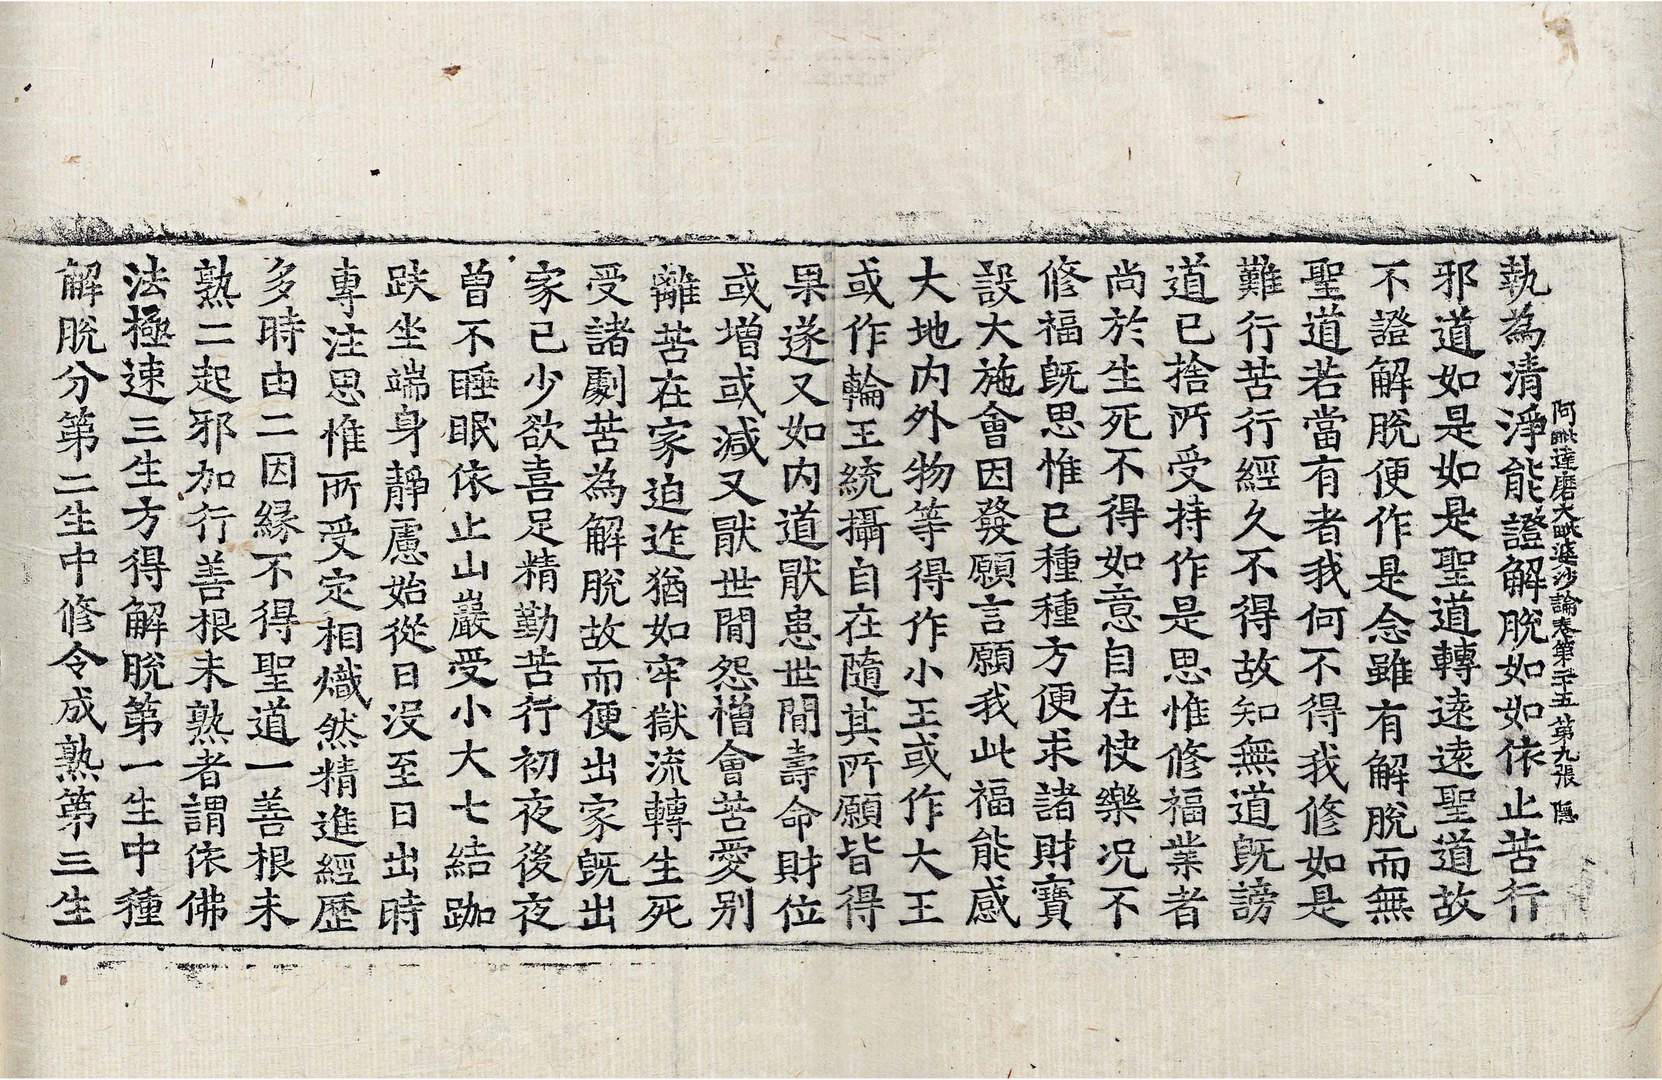 阿毗達磨大毗婆沙論卷第三十五 第九張 隱
執為清淨能證解脫如如依止苦行
邪道如是如是聖道轉遠遠聖道故
不證解脫便作是念雖有解脫而無
聖道若當有者我何不得我修如是
難行苦行經久不得故知無道旣謗
道已捨所受持作是思惟修福業者
尚於生死不得如意自在快樂况不
修福旣思惟已種種方便求諸財寶
設大施會因發願言願我此福能感
大地內外物等得作小王或作大王
或作輪王統攝自在隨其所願皆得
果遂又如內道猒患世閒壽命財位
或增或減又猒世閒怨憎會苦愛別
離苦在家迫迮猶如牢獄流轉生死
受諸劇苦為解脫故而便出家旣出
家已少欲喜足精勤苦行初夜後夜
曾不睡眠依止山巖受小大七結跏
趺坐端身靜慮始從日沒至日出時
專注思惟所受定相熾然精進經歷
多時由二因緣不得聖道一善根未
熟二起邪加行善根未熟者謂依佛
法極速三生方得解脫第一生中種
解脫分第二生中修令成熟第三生